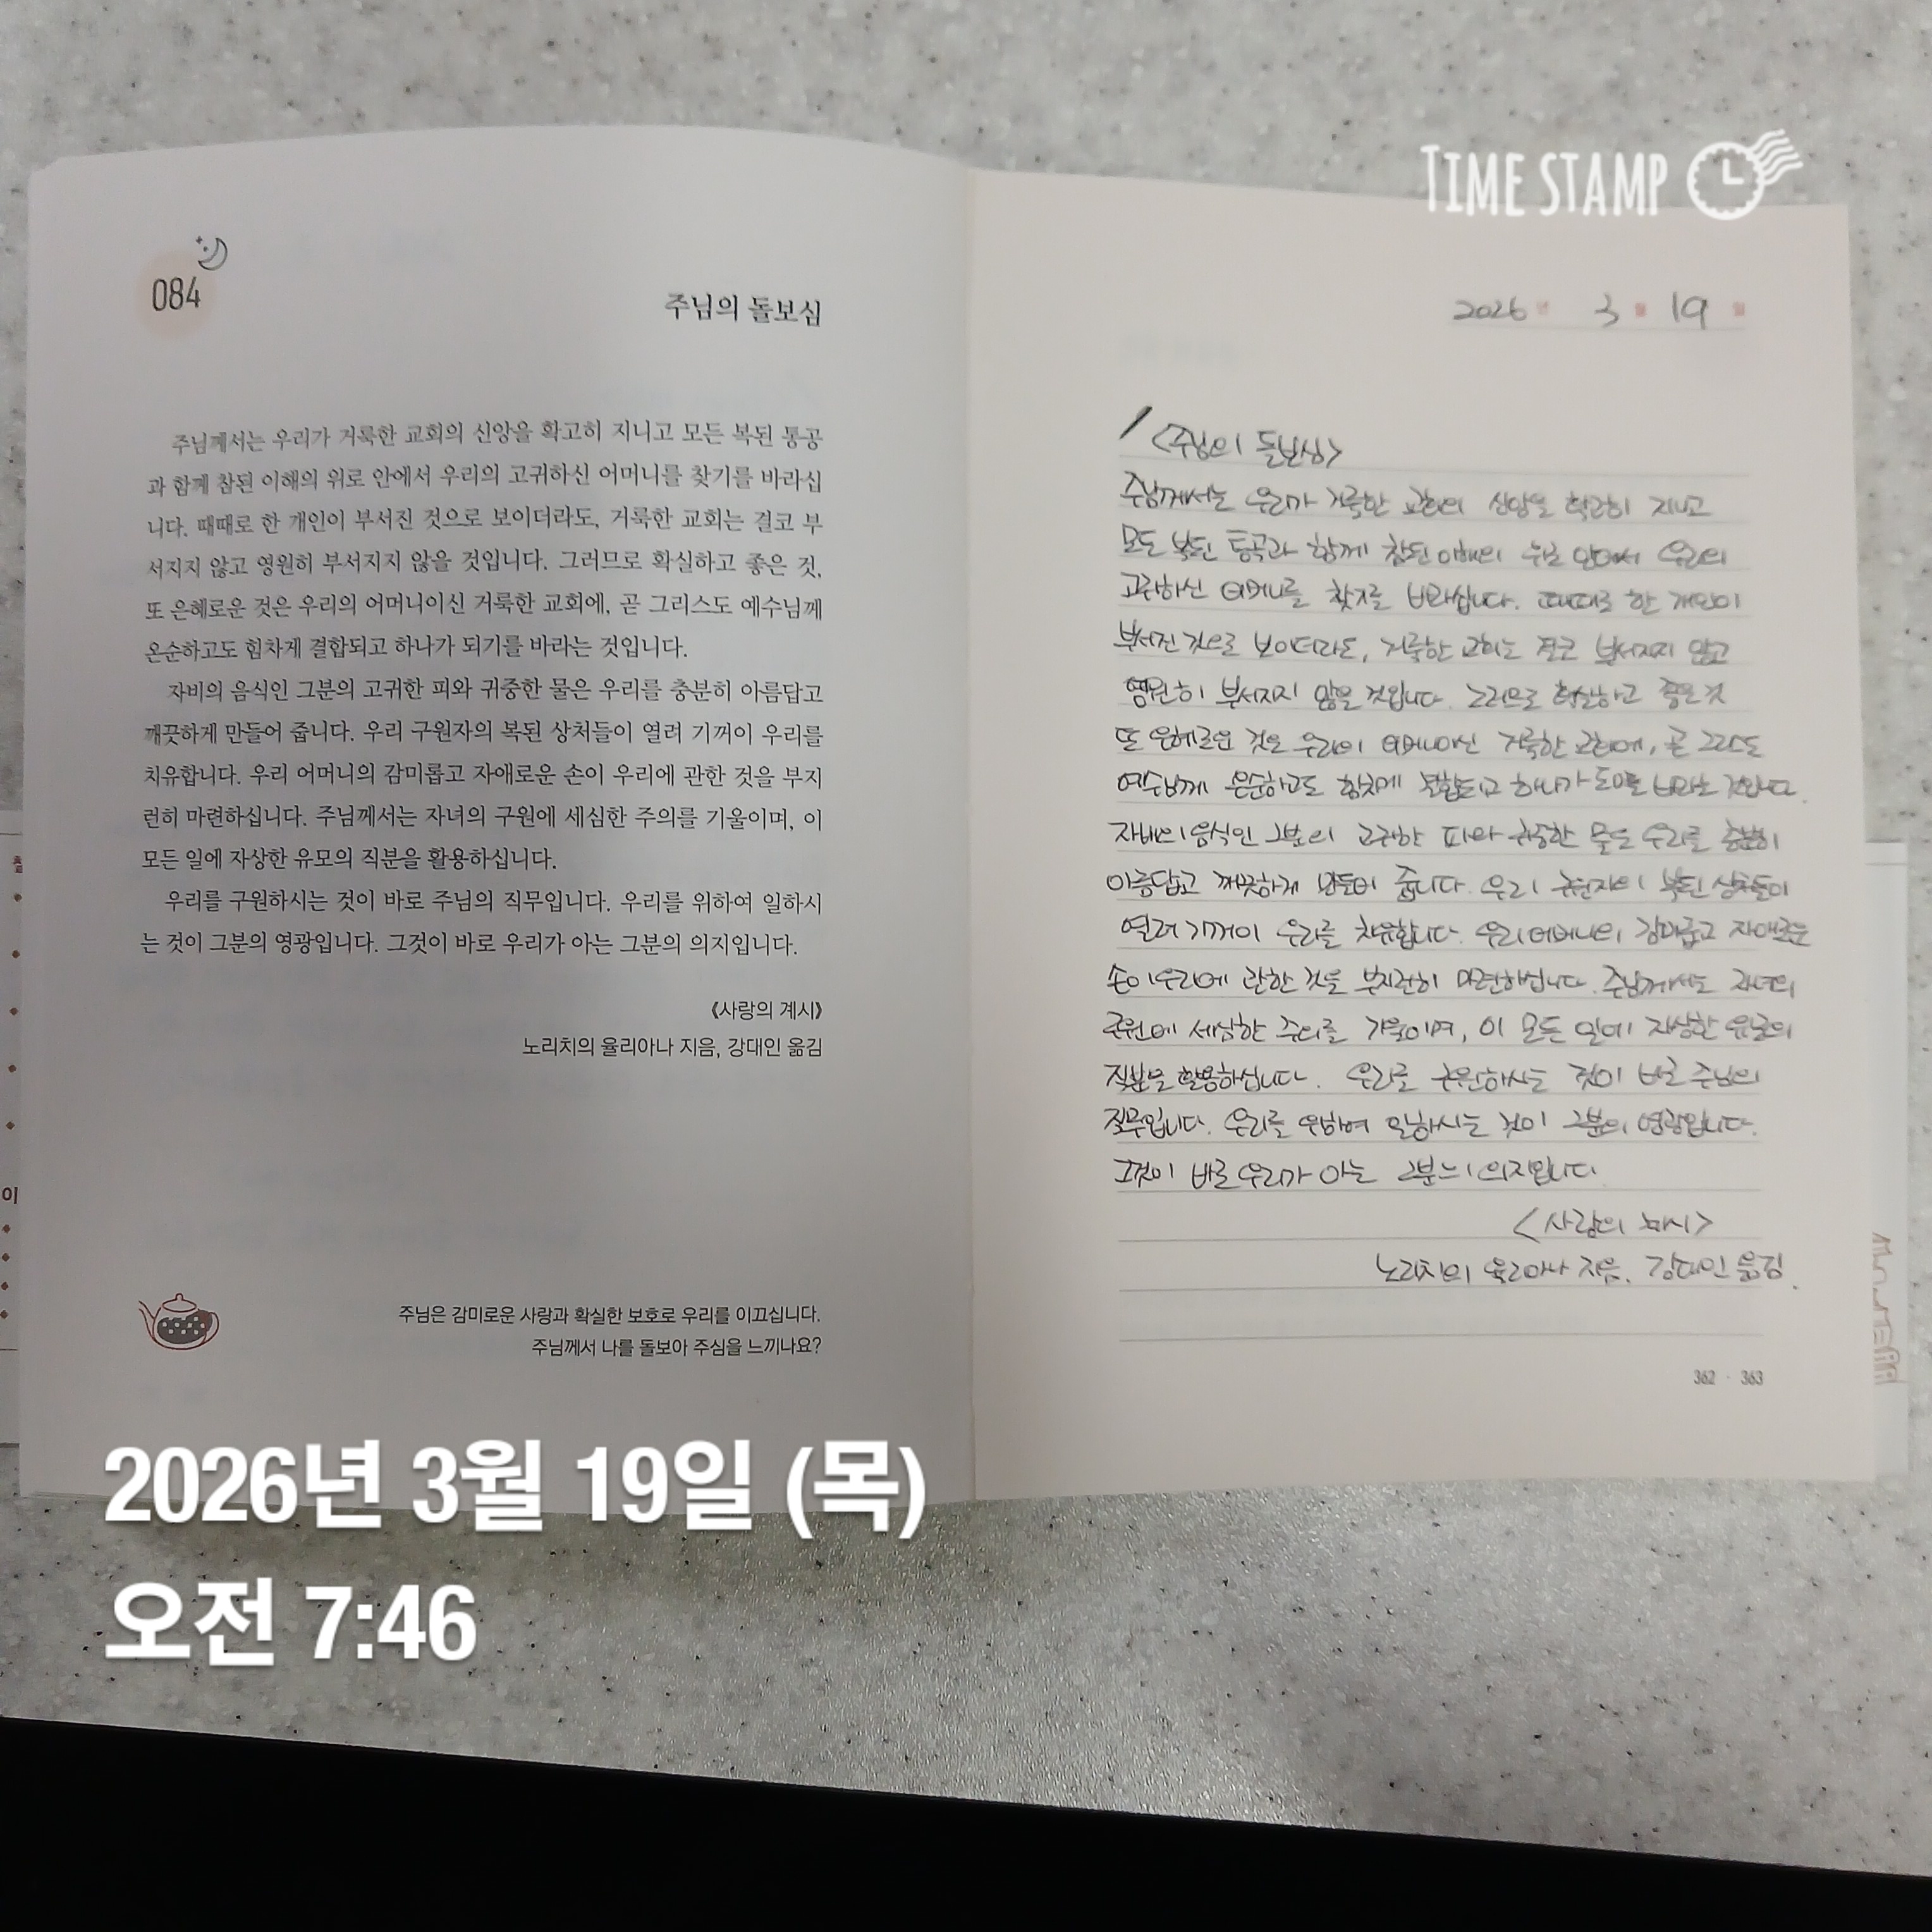 TIME STAMP
084
주님의 돌보심
주님께서는 우리가 거룩한 교회의 신앙을 확고히 지니고 모든 복된 통공
과 함께 참된 이해의 위로 안에서 우리의 고귀하신 어머니를 찾기를 바라십
니다. 때때로 한 개인이 부서진 것으로 보이더라도, 거룩한 교회는 결코 부
서지지 않고 영원히 부서지지 않을 것입니다. 그러므로 확실하고 좋은 것,
또 은혜로운 것은 우리의 어머니이신 거룩한 교회에, 곧 그리스도 예수님께
온순하고도 힘차게 결합되고 하나가 되기를 바라는 것입니다.
자비의 음식인 그분의 고귀한 피와 귀중한 물은 우리를 충분히 아름답고
깨끗하게 만들어 줍니다. 우리 구원자의 복된 상처들이 열려 기꺼이 우리를
치유합니다. 우리 어머니의 감미롭고 자애로운 손이 우리에 관한 것을 부지
런히 마련하십니다. 주님께서는 자녀의 구원에 세심한 주의를 기울이며, 이
모든 일에 자상한 유모의 직분을 활용하십니다.
우리를 구원하시는 것이 바로 주님의 직무입니다. 우리를 위하여 일하시
는 것이 그분의 영광입니다. 그것이 바로 우리가 아는 그분의 의지입니다.
《사랑의 계시》
노리치의 율리아나 지음, 강대인 옮김
주님은 감미로운 사랑과 확실한 보호로 우리를 이끄십니다.
주님께서 나를 돌보아 주심을 느끼나요?
2026년 3월 19일
<주님의 돌보심>
주님께서는 우리가 거룩한 교회의 신앙을 확고히 지니고
모든 복된 통곡과 함께 참된 이해의 위로 안에서 우리의
고귀하신 어머니를 찾기를 바라십니다. 때때로 한 개인이
부서진 것으로 보이더라도, 거룩한 교회는 결코 부서지지 않고
영원히 부서지지 않을 것입니다. 그러므로 확실하고 좋은 것
또 은혜로운 것은 우리의 어머니이신 거룩한 교회에, 곧 그리스도
예수님께 온순하고도 힘차게 결합되고 하나가 되기를 바라는 것입니다.
자비의 음식인 그분의 고귀한 피와 귀중한 물은 우리를 충분히
아름답고 깨끗하게 만들어 줍니다. 우리 구원자의 복된 상처들이
열려 기꺼이 우리를 치유합니다. 우리 어머니의 감미롭고 자애로운
손이 우리에 관한 것을 부지런히 마련하십니다. 주님께서는 자녀의
구원에 세심한 주의를 기울이며, 이 모든 일에 자상한 유모의
직분을 활용하십니다. 우리를 구원하시는 것이 바로 주님의
직무입니다. 우리를 위하여 일하시는 것이 그분의 영광입니다.
그것이 바로 우리가 아는 그분의 의지입니다
<사랑의 계시>
노리치의 율리아나 지음, 강대인 옮김.
362 · 363
2026년 3월 19일 (목)
오전 7:46